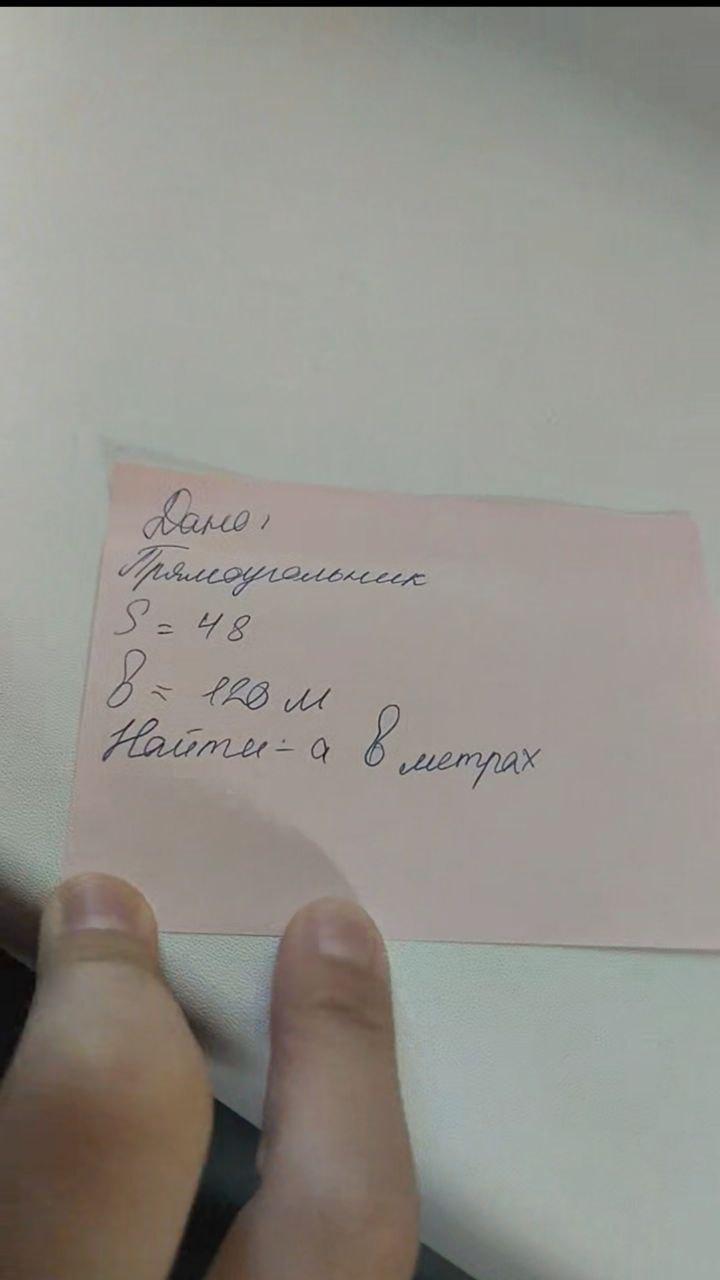 Дано,
Прямоугольник
S = 48
в = 120 м
Найти - а в метрах